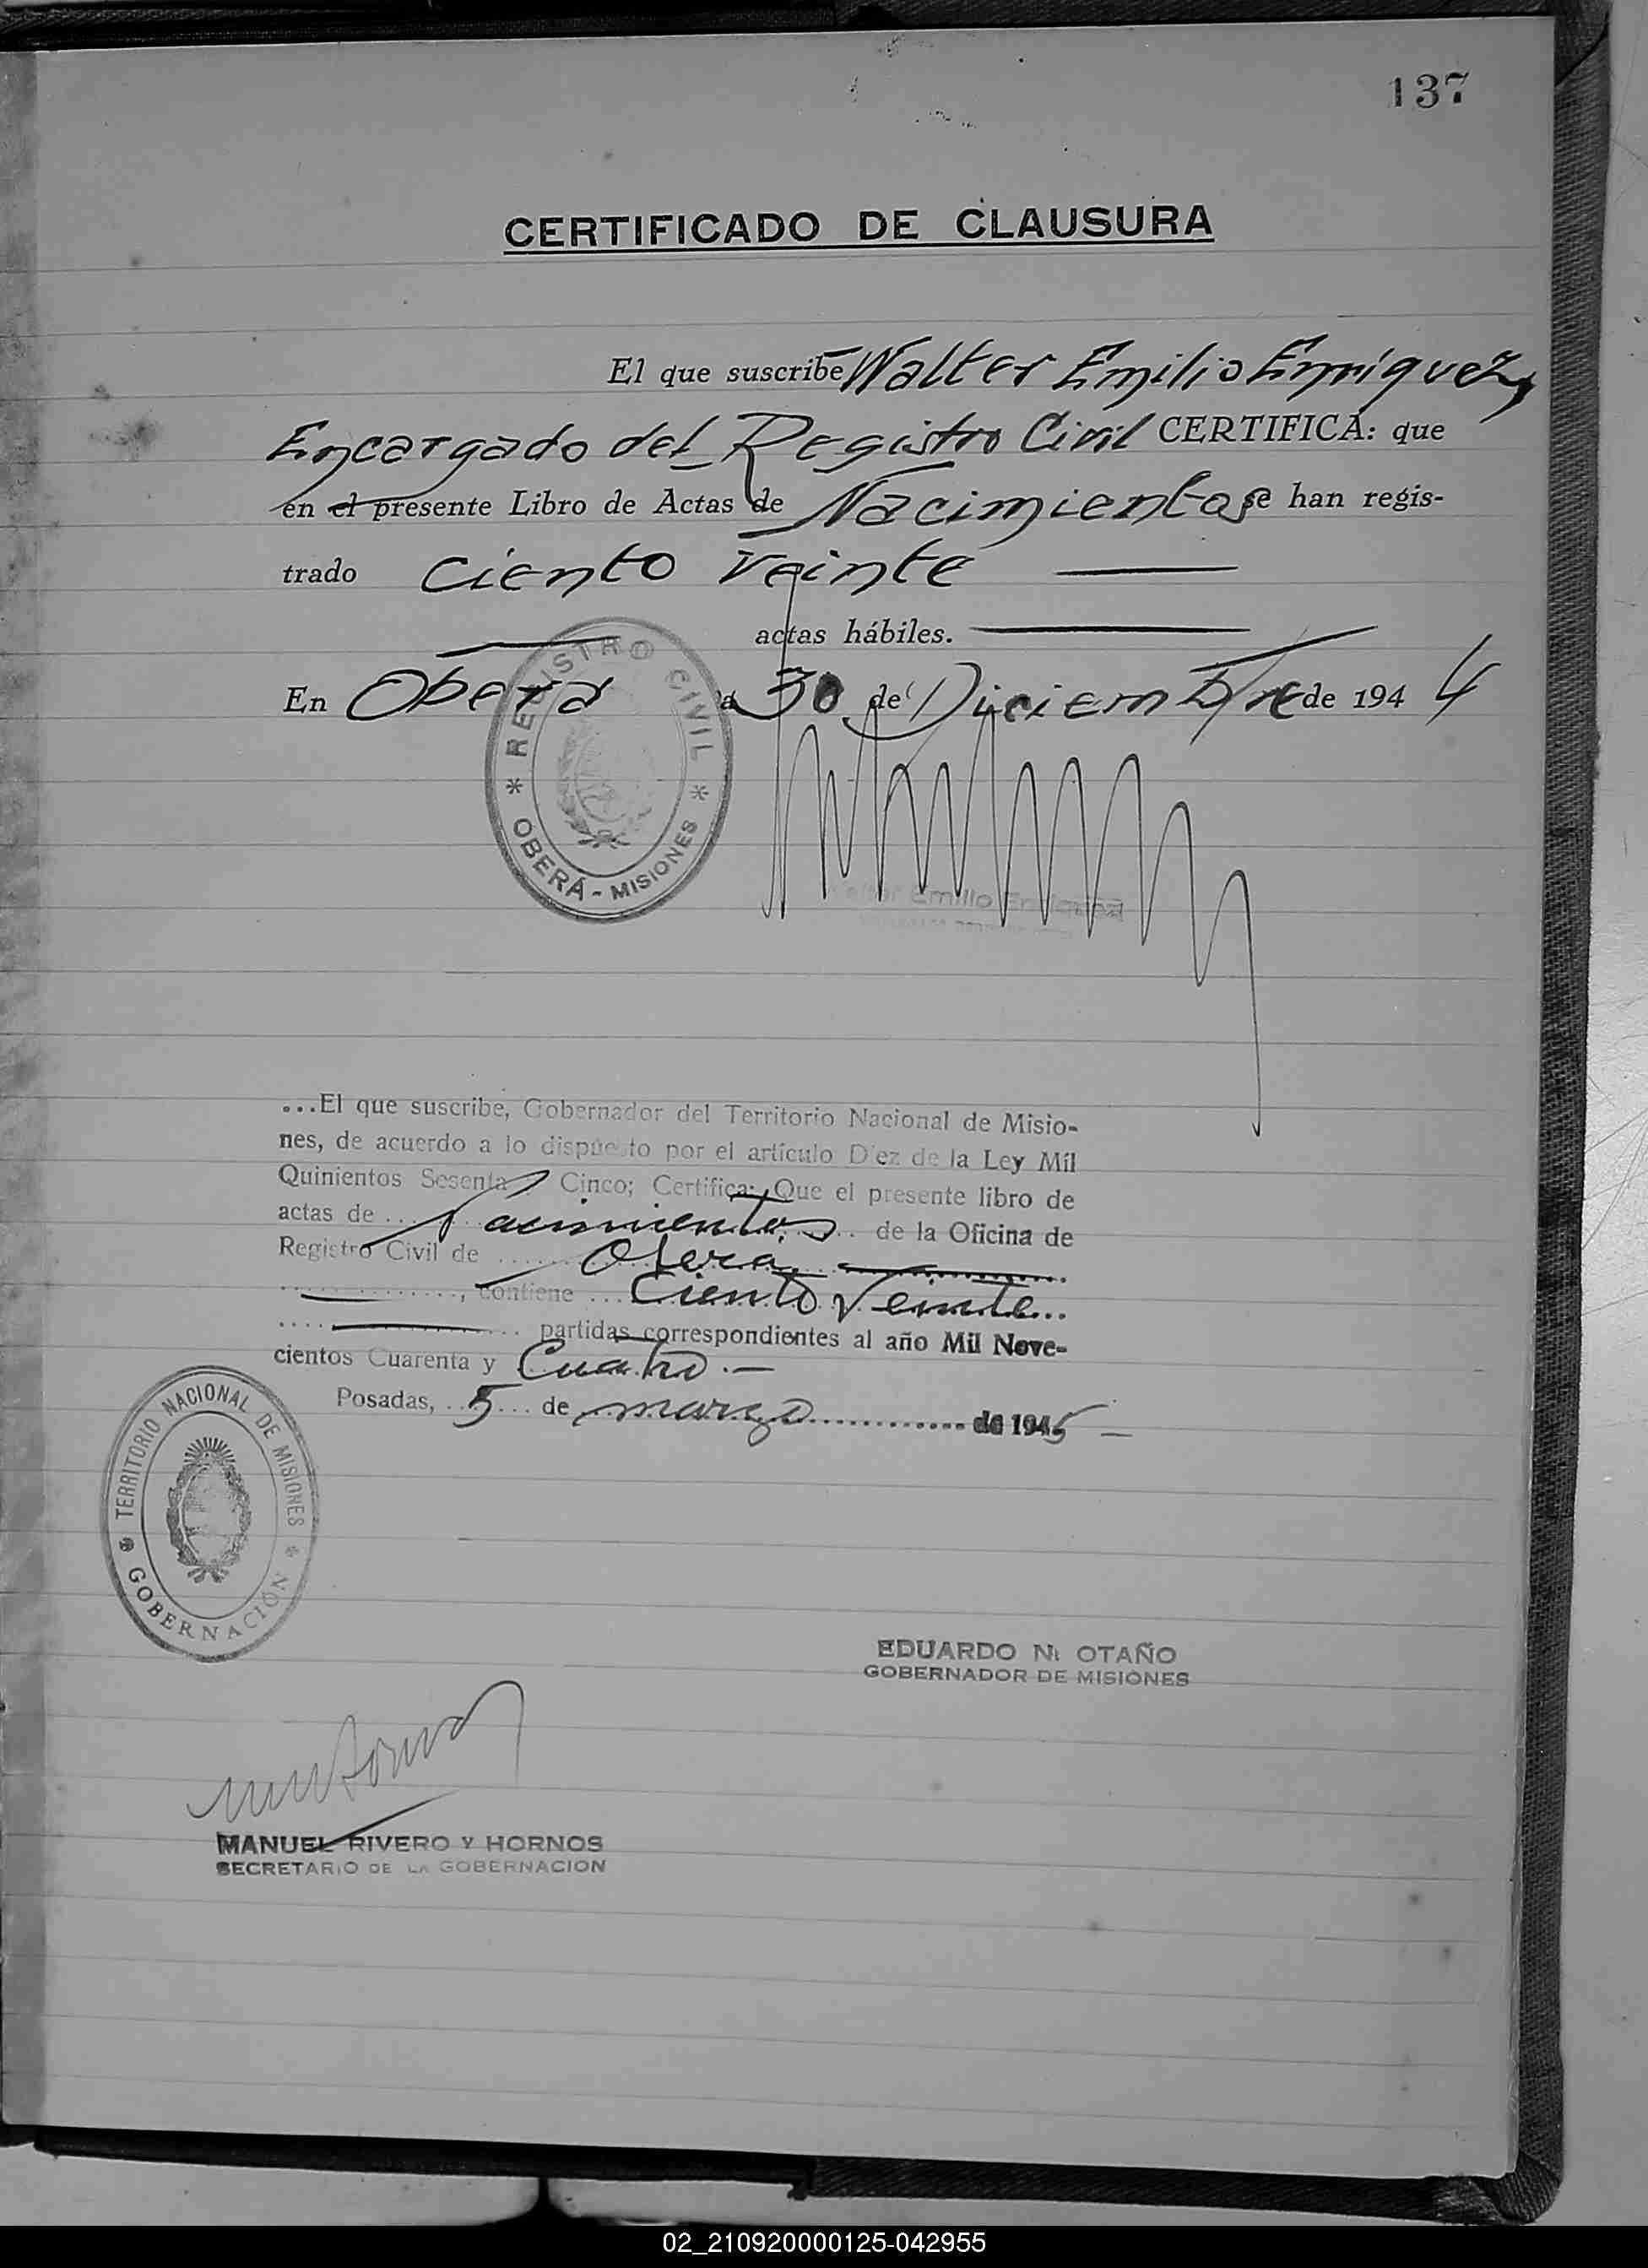 137
CERTIFICADO DE CLAUSURA
El que suscribe Walter Emilio Enriquez,
Encargado del Registro Civil CERTIFICA: que
en el presente Libro de Actas de Nacimientos se han regis-
trado ciento veinte
actas hábiles.
En Oberá a 30 de Diciembre de 1944
REGISTRO CIVIL
* OBERÁ - MISIONES *
Emilio Enriquez
...El que suscribe, Gobernador del Territorio Nacional de Misio-
nes, de acuerdo a lo dispuesto por el artículo Diez de la Ley Mil
Quinientos Sesenta y Cinco; Certifica: Que el presente libro de
actas de ... Nacimientos ... de la Oficina de
Registro Civil de ...... Obera ......
............, contiene ... Ciento Veinte...
............ partidas correspondientes al año Mil Nove-
cientos Cuarenta y Cuatro.-
Posadas, ..5... de marzo............ de 1945 -
TERRITORIO NACIONAL DE MISIONES
* GOBERNACIÓN *
EDUARDO N. OTAÑO
GOBERNADOR DE MISIONES
MANUEL RIVERO Y HORNOS
SECRETARIO DE LA GOBERNACION
02_210920000125-042955